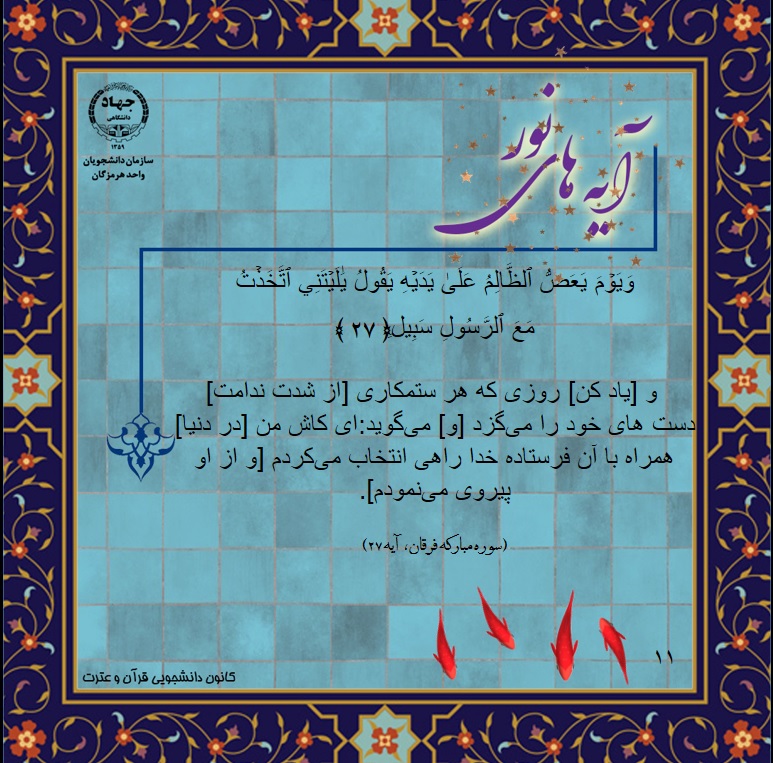 جهاد
دانشگاهی
۱۳۵۹
سازمان دانشجویان
واحد هرمزگان
آیه های نور
وَيَوۡمَ يَعَضُّ ٱلظَّالِمُ عَلَىٰ يَدَيۡهِ يَقُولُ يَٰلَيۡتَنِي ٱتَّخَذۡتُ
مَعَ ٱلرَّسُولِ سَبِيلٗا﴿ ۲۷ ﴾
و [یاد کن] روزی که هر ستمکاری [از شدت ندامت]
دست های خود را می‌گزد [و] می‌گوید:ای کاش من [در دنیا]
همراه با آن فرستاده خدا راهی انتخاب می‌کردم [و از او
پیروی می‌نمودم].
(سوره مبارکه فرقان، آیه ۲۷)
۱۱
کانون دانشجویی قرآن و عترت